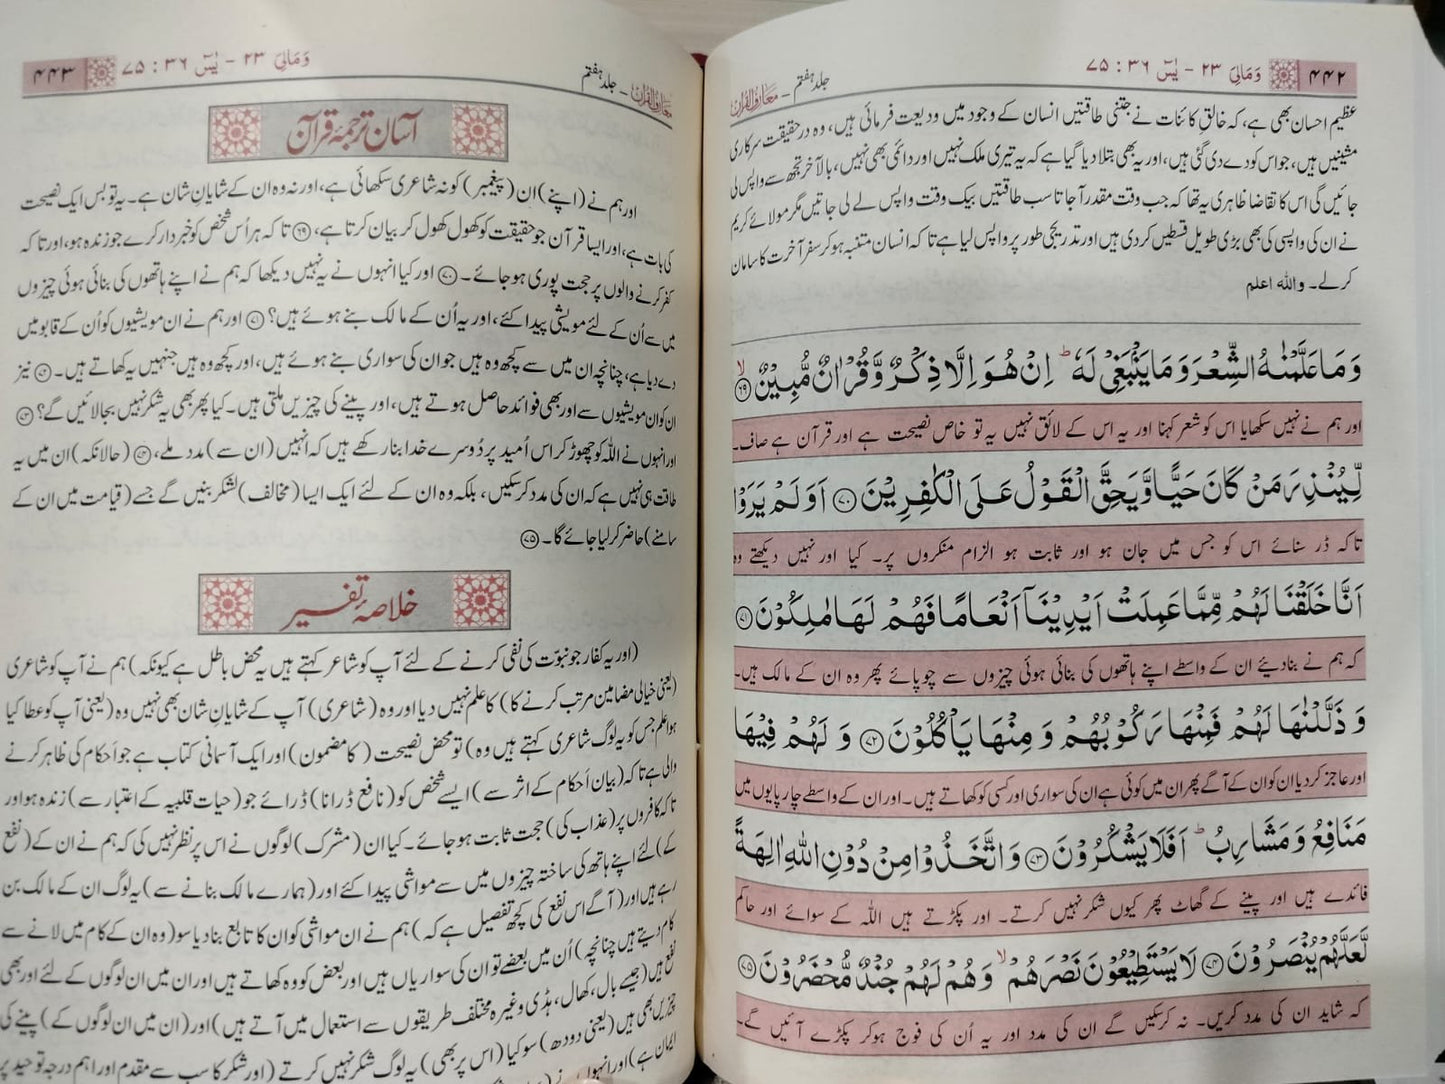 ۴۴۲
وَمَالِیَ ۲۳ - یٰسٓ ۳۶ : ۷۵
معارف القرآن - جلد ہفتم
عظیم احسان بھی ہے، کہ خالقِ کائنات نے جتنی طاقتیں انسان کے وجود میں ودیعت فرمائی ہیں، وہ در حقیقت سرکاری
مشینیں ہیں، جو اس کو دے دی گئی ہیں، اور یہ بھی بتلا دیا گیا ہے کہ یہ تیری ملک نہیں اور دائمی بھی نہیں، بالآخر تجھ سے واپس لی
جائیں گی اس کا تقاضا ظاہری یہ تھا کہ جب وقت مقدر آجاتا سب طاقتیں بیک وقت واپس لے لی جاتیں مگر مولائے کریم
نے ان کی واپسی کی بھی بڑی طویل قسطیں کر دی ہیں اور تدریجی طور پر واپس لیا ہے تاکہ انسان متنبہ ہو کر سفر آخرت کا سامان
کرلے۔ واللہ اعلم
وَمَا عَلَّمْنٰهُ الشِّعْرَ وَمَا یَنْۢبَغِیْ لَهٗ ؕ اِنْ هُوَ اِلَّا ذِكْرٌ وَّقُرْاٰنٌ مُّبِیْنٌ ۙ﴿۶۹﴾
اور ہم نے نہیں سکھایا اس کو شعر کہنا اور یہ اس کے لائق نہیں یہ تو خاص نصیحت ہے اور قرآن ہے صاف۔
لِّیُنْذِرَ مَنْ كَانَ حَیًّا وَّیَحِقَّ الْقَوْلُ عَلَى الْكٰفِرِیْنَ ﴿۷۰﴾ اَوَلَمْ یَرَوْا
تاکہ ڈر سنائے اس کو جس میں جان ہو اور ثابت ہو الزام منکروں پر۔ کیا اور نہیں دیکھتے وہ
اَنَّا خَلَقْنَا لَهُمْ مِّمَّا عَمِلَتْ اَیْدِیْنَاۤ اَنْعَامًا فَهُمْ لَهَا مٰلِكُوْنَ ﴿۷۱﴾
کہ ہم نے بنا دیئے ان کے واسطے اپنے ہاتھوں کی بنائی ہوئی چیزوں سے چوپائے پھر وہ ان کے مالک ہیں۔
وَ ذَلَّلْنٰهَا لَهُمْ فَمِنْهَا رَكُوْبُهُمْ وَ مِنْهَا یَاْكُلُوْنَ ﴿۷۲﴾ وَ لَهُمْ فِیْهَا
اور عاجز کر دیا ان کو ان کے آگے پھر ان میں کوئی ہے ان کی سواری اور کسی کو کھاتے ہیں۔ اور ان کے واسطے چارپایوں میں
مَنَافِعُ وَ مَشَارِبُ ؕ اَفَلَا یَشْكُرُوْنَ ﴿۷۳﴾ وَاتَّخَذُوْا مِنْ دُوْنِ اللّٰهِ اٰلِهَةً
فائدے ہیں اور پینے کے گھاٹ پھر کیوں شکر نہیں کرتے۔ اور پکڑتے ہیں اللہ کے سوائے اور حاکم
لَّعَلَّهُمْ یُنْصَرُوْنَ ﴿۷۴﴾ لَا یَسْتَطِیْعُوْنَ نَصْرَهُمْ ۙ وَهُمْ لَهُمْ جُنْدٌ مُّحْضَرُوْنَ ﴿۷۵﴾
کہ شاید ان کی مدد کریں۔ نہ کرسکیں گے ان کی مدد اور یہ اُن کی فوج ہوکر پکڑے آئیں گے۔
وَمَالِیَ ۲۳ - یٰسٓ ۳۶ : ۷۵
۴۴۳
معارف القرآن - جلد ہفتم
آسان ترجمۂ قرآن
اور ہم نے (اپنے) ان (پیغمبر) کو نہ شاعری سکھائی ہے، اور نہ وہ ان کے شایانِ شان ہے۔ یہ تو بس ایک نصیحت
کی بات ہے، اور ایسا قرآن جو حقیقت کو کھول کھول کر بیان کرتا ہے، ﴿۶۹﴾ تاکہ ہر اُس شخص کو خبردار کرے جو زندہ ہو، اور تاکہ
کفر کرنے والوں پر حجت پوری ہو جائے۔ ﴿۷۰﴾ اور کیا انہوں نے یہ نہیں دیکھا کہ ہم نے اپنے ہاتھوں کی بنائی ہوئی چیزوں
میں سے اُن کے لئے مویشی پیدا کئے، اور یہ اُن کے مالک بنے ہوئے ہیں؟ ﴿۷۱﴾ اور ہم نے ان مویشیوں کو اُن کے قابو میں
دے دیا ہے، چنانچہ ان میں سے کچھ وہ ہیں جو ان کی سواری بنے ہوئے ہیں، اور کچھ وہ ہیں جنہیں یہ کھاتے ہیں۔ ﴿۷۲﴾ نیز
ان کو ان مویشیوں سے اور بھی فوائد حاصل ہوتے ہیں، اور پینے کی چیزیں ملتی ہیں۔ کیا پھر بھی یہ شکر نہیں بجا لائیں گے؟ ﴿۷۳﴾
اور انہوں نے اللہ کو چھوڑ کر اس اُمید پر دُوسرے خدا بنا رکھے ہیں کہ اُنہیں (ان سے) مدد ملے، ﴿۷۴﴾ (حالانکہ) ان میں یہ
طاقت ہی نہیں ہے کہ ان کی مدد کرسکیں، بلکہ وہ ان کے لئے ایک ایسا (مخالف) لشکر بنیں گے جسے (قیامت میں ان کے
سامنے) حاضر کر لیا جائے گا۔ ﴿۷۵﴾
خلاصۂ تفسیر
(اور یہ کفار جو نبوّت کی نفی کرنے کے لئے آپ کو شاعر کہتے ہیں یہ محض باطل ہے کیونکہ) ہم نے آپ کو شاعری
(یعنی خیالی مضامین مرتب کرنے کا) کا علم نہیں دیا اور وہ (شاعری) آپ کے شایانِ شان بھی نہیں وہ (یعنی آپ کو عطا کیا
ہوا علم جس کو یہ لوگ شاعری کہتے ہیں وہ) تو محض نصیحت (کا مضمون) اور ایک آسمانی کتاب ہے جو احکام کی ظاہر کرنے
والی ہے تاکہ (بیانِ اَحکام کے اثر سے) ایسے شخص کو (نافع ڈرانا) ڈرائے جو (حیات قلبیہ کے اعتبار سے) زندہ ہو اور
تاکہ کافروں پر (عذاب کی) حجت ثابت ہو جائے۔ کیا ان (مشرک) لوگوں نے اس پر نظر نہیں کی کہ ہم نے ان کے (نفع
کے) لئے اپنے ہاتھ کی ساختہ چیزوں میں سے مواشی پیدا کئے اور (ہمارے مالک بنانے سے) یہ لوگ ان کے مالک بن
رہے ہیں اور (آگے اس نفع کی کچھ تفصیل ہے کہ) ہم نے ان مواشی کو ان کا تابع بنا دیا سو (وہ ان کے کام میں لانے سے
کام دیتے ہیں چنانچہ) اُن میں بعضے تو ان کی سواریاں ہیں اور بعض کو وہ کھاتے ہیں اور ان میں ان لوگوں کے لئے اور بھی
نفع ہیں (جیسے بال، کھال، ہڈی وغیرہ مختلف طریقوں سے استعمال میں آتے ہیں) اور (ان میں ان لوگوں کے) پینے کی
چیزیں بھی ہیں (یعنی دودھ) سو کیا (اس پر بھی) یہ لوگ شکر نہیں کرتے (اور شکر کا سب سے مقدم اور اہم درجہ توحید پر
ایمان ہے) اور انہوں